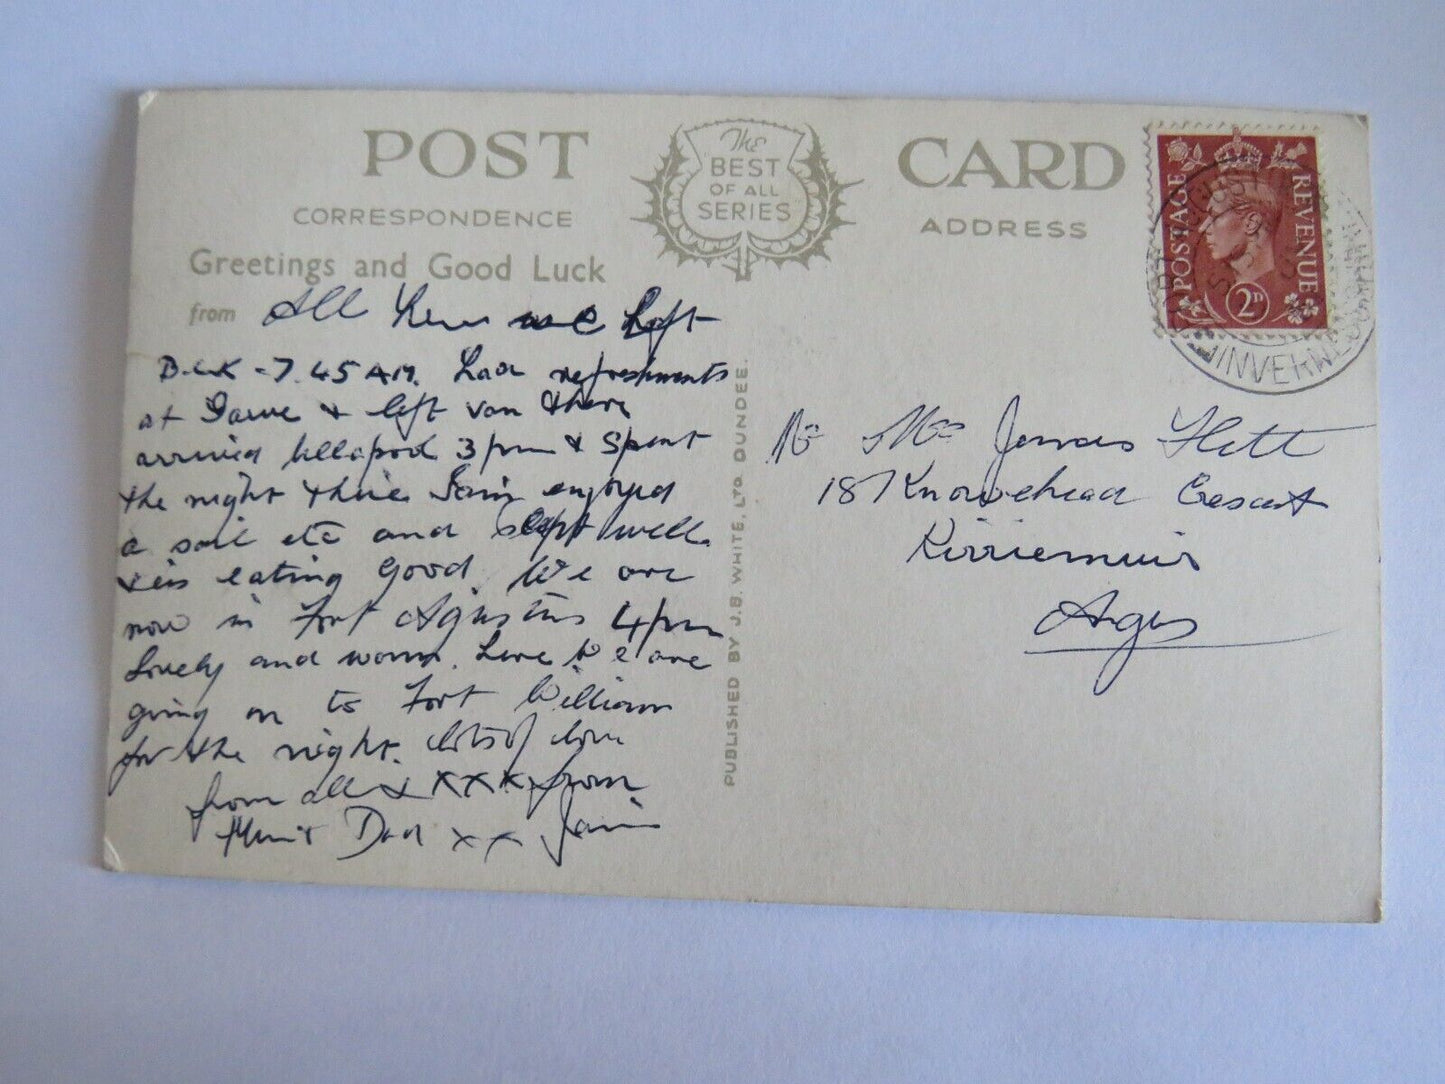 POST CARD
The
BEST
OF ALL
SERIES
CORRESPONDENCE
ADDRESS
Greetings and Good Luck
from All here we left
B.CK - 7.45 AM. Had refreshments
at & left van there
arrived Ullapool 3pm & spent
the night there Iain enjoyed
a sail etc and slept well
& is eating good. We are
now in Fort Agustus 4pm
Lovely and warm here We are
going on to Fort William
for the night. lots of love
from all & xxx from
Mum & Dad xx Iain
PUBLISHED BY J.B. WHITE, LTD. DUNDEE.
POSTAGE
REVENUE
2D
INVERNESS
Mr Mrs James Flett
187 Knowehead Crescent
Kirriemuir
Angus